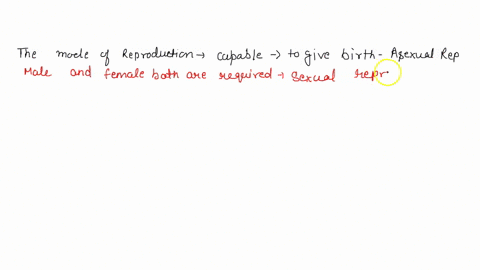 The mode of Reproduction → capable → to give birth - Asexual Rep
Male and female both are required → sexual repr